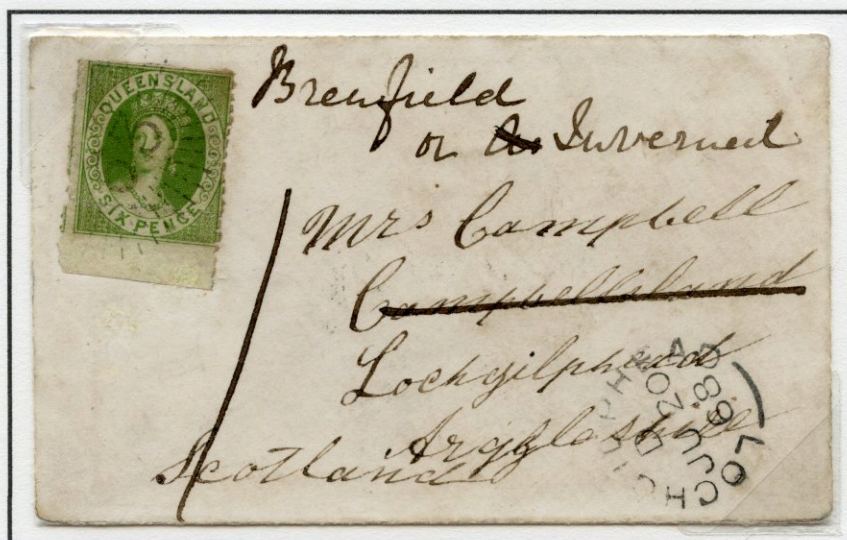 QUEENSLAND
SIX PENCE
Brenfield
or Inverneil
Mrs Campbell
Campbellsland
Lochgilphead
Argyleshire
Scotland
LOCHGILPHEAD
D
JU 20
68